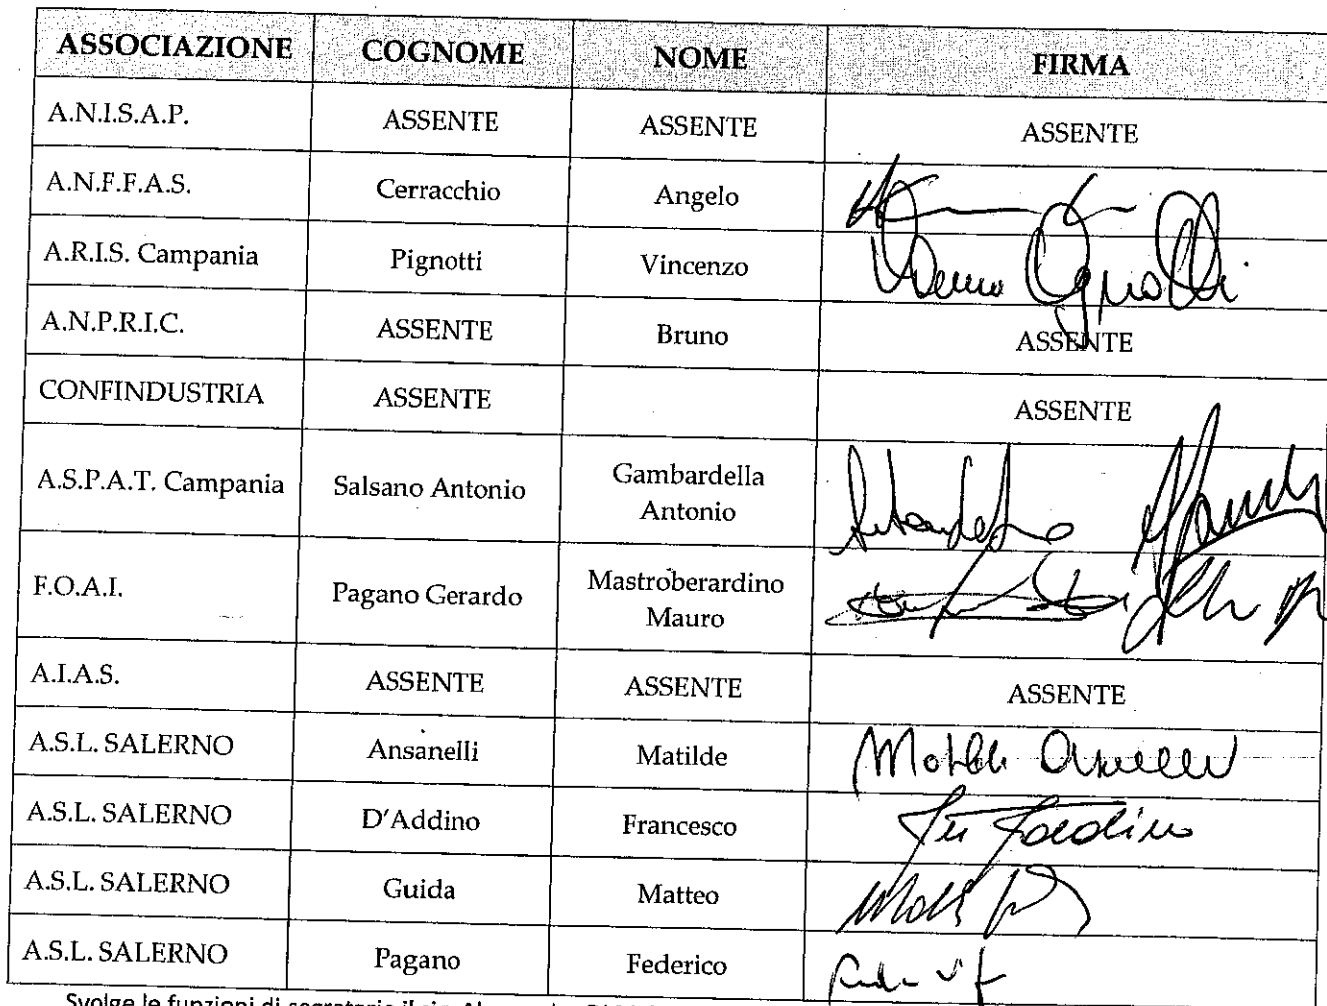 ASSOCIAZIONE COGNOME NOME FIRMA
A.N.I.S.A.P. ASSENTE ASSENTE ASSENTE
A.N.F.F.A.S. Cerracchio Angelo
A.R.I.S. Campania Pignotti Vincenzo
A.N.P.R.I.C. ASSENTE Bruno ASSENTE
CONFINDUSTRIA ASSENTE ASSENTE
A.S.P.A.T. Campania Salsano Antonio Gambardella
Antonio
F.O.A.I. Pagano Gerardo Mastroberardino
Mauro
A.I.A.S. ASSENTE ASSENTE ASSENTE
A.S.L. SALERNO Ansanelli Matilde
A.S.L. SALERNO D'Addino Francesco
A.S.L. SALERNO Guida Matteo
A.S.L. SALERNO Pagano Federico
Svolge le funzioni di segretario il sig.